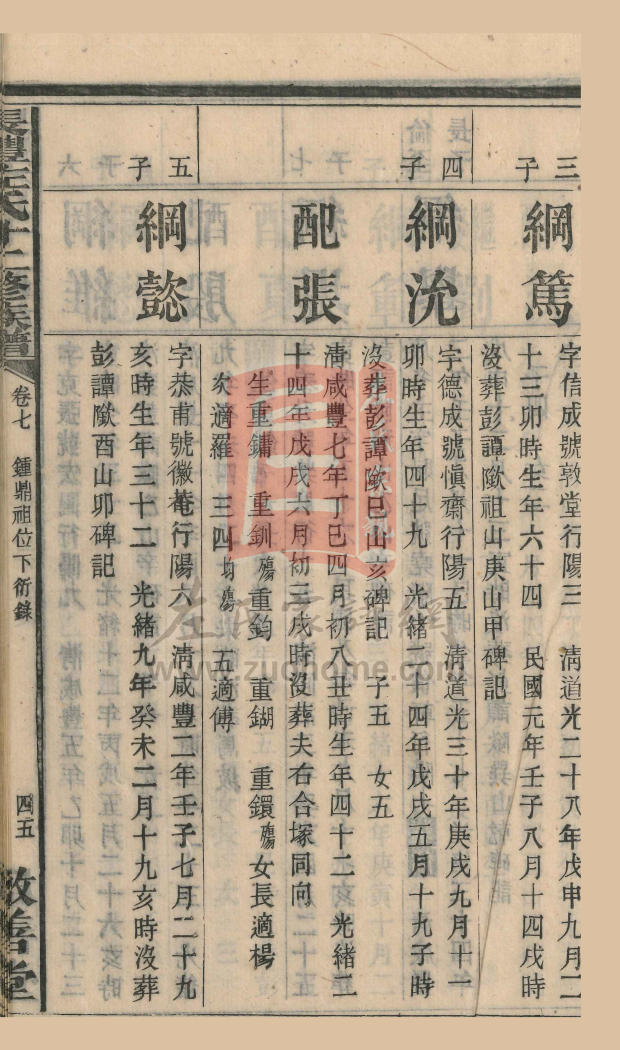 三子
綱篤
字信成號敦堂行陽三 淸道光二十八年戊申九月二
十三卯時生年六十四 民國元年壬子八月十四戌時
沒葬彭譚歟祖山庚山甲碑記
四子
綱沇
字德成號愼齋行陽五 淸道光三十年庚戌九月十一
卯時生年四十九 光緒二十四年戊戌五月十九子時
沒葬彭譚歟巳山亥碑記 子五 女五
配張
淸咸豐七年丁巳四月初八丑時生年四十二亥 光緒二
十四年戊戌六月初三戌時沒葬夫右合塚同向
生重鏞 重釧殤 重鈞 重鍸 重鐶殤 女長適楊
次適羅 三四均殤 五適傅
五子
綱懿
字恭甫號徽菴行陽六 淸咸豐二年壬子七月二十九
亥時生年三十二 光緒九年癸未二月十九亥時沒葬
彭譚歟酉山卯碑記
長豐左氏十二修族譜
卷七 鍾鼎祖位下衍錄
四五
敦善堂
左氏家譜網
www.zuohome.com